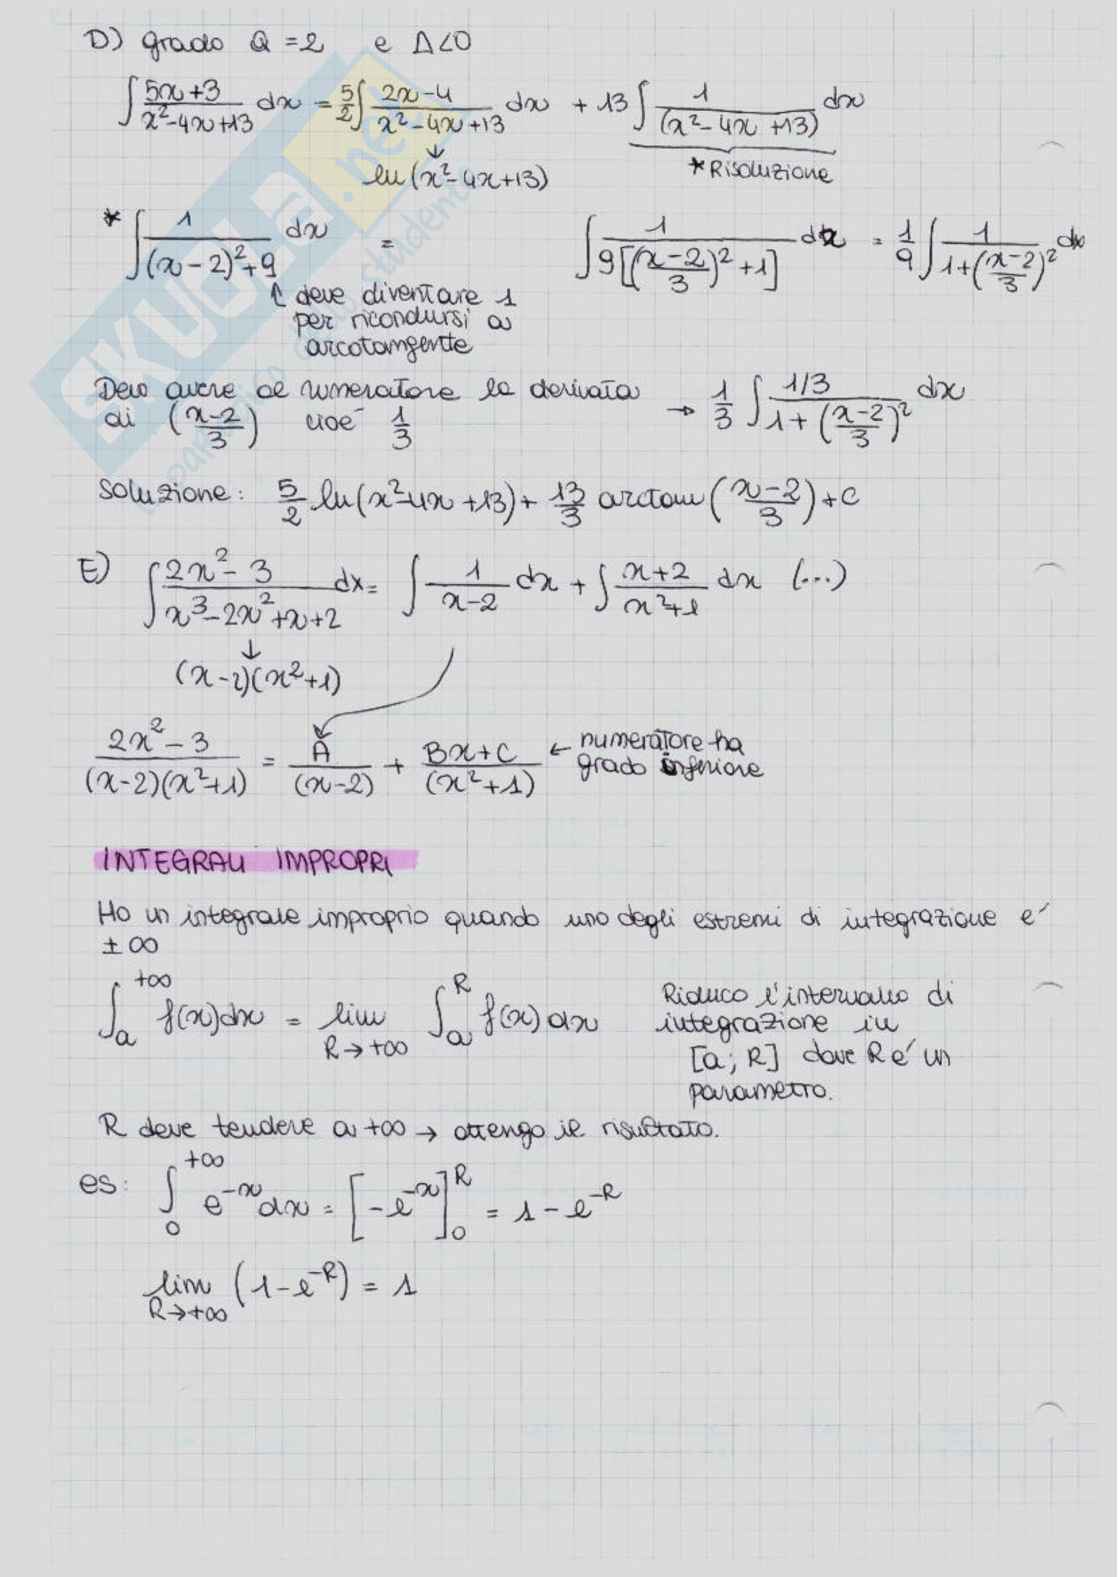 D) grado Q = 2 e Δ<0
∫ (5x+3)/(x²-4x+13) dx = 5/2 ∫ (2x-4)/(x²-4x+13) dx + 13 ∫ 1/(x²-4x+13) dx
↓ *Risoluzione
ln(x²-4x+13)
* ∫ 1/((x-2)²+9) dx = ∫ 1/(9[((x-2)/3)²+1]) dx = 1/9 ∫ 1/(1+((x-2)/3)²) dx
↑ deve diventare 1
per ricondursi a
arcotangente
Devo avere al numeratore la derivata → 1/3 ∫ (1/3)/(1+((x-2)/3)²) dx
di ((x-2)/3) cioè 1/3
soluzione: 5/2 ln(x²-4x+13) + 13/3 arctan((x-2)/3) + c
E) ∫ (2x²-3)/(x³-2x²+x+2) dx = ∫ 1/(x-2) dx + ∫ (x+2)/(x²+1) dx (...)
↓
(x-2)(x²+1)
(2x²-3)/((x-2)(x²+1)) = A/(x-2) + (Bx+C)/(x²+1) ← numeratore ha
grado inferiore
INTEGRALI IMPROPRI
Ho un integrale improprio quando uno degli estremi di integrazione e´
±∞
∫ₐ^{+∞} f(x)dx = lim_{R→+∞} ∫ₐ^R f(x)dx Riduco l'intervallo di
integrazione in
[a; R] dove R e´ un
parametro.
R deve tendere a +∞ → ottengo il risultato.
es: ∫₀^{+∞} e^{-x}dx = [-e^{-x}]₀^R = 1-e^{-R}
lim_{R→+∞} (1-e^{-R}) = 1
SKUOLA.net